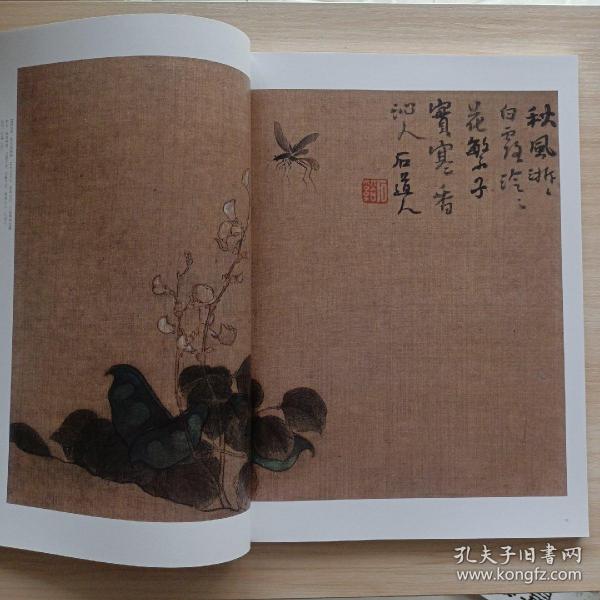 秋風淅〻
白露泠〻
花繁子
實寒香
沁人 石道人
孔夫子旧书网
www.kongfz.com